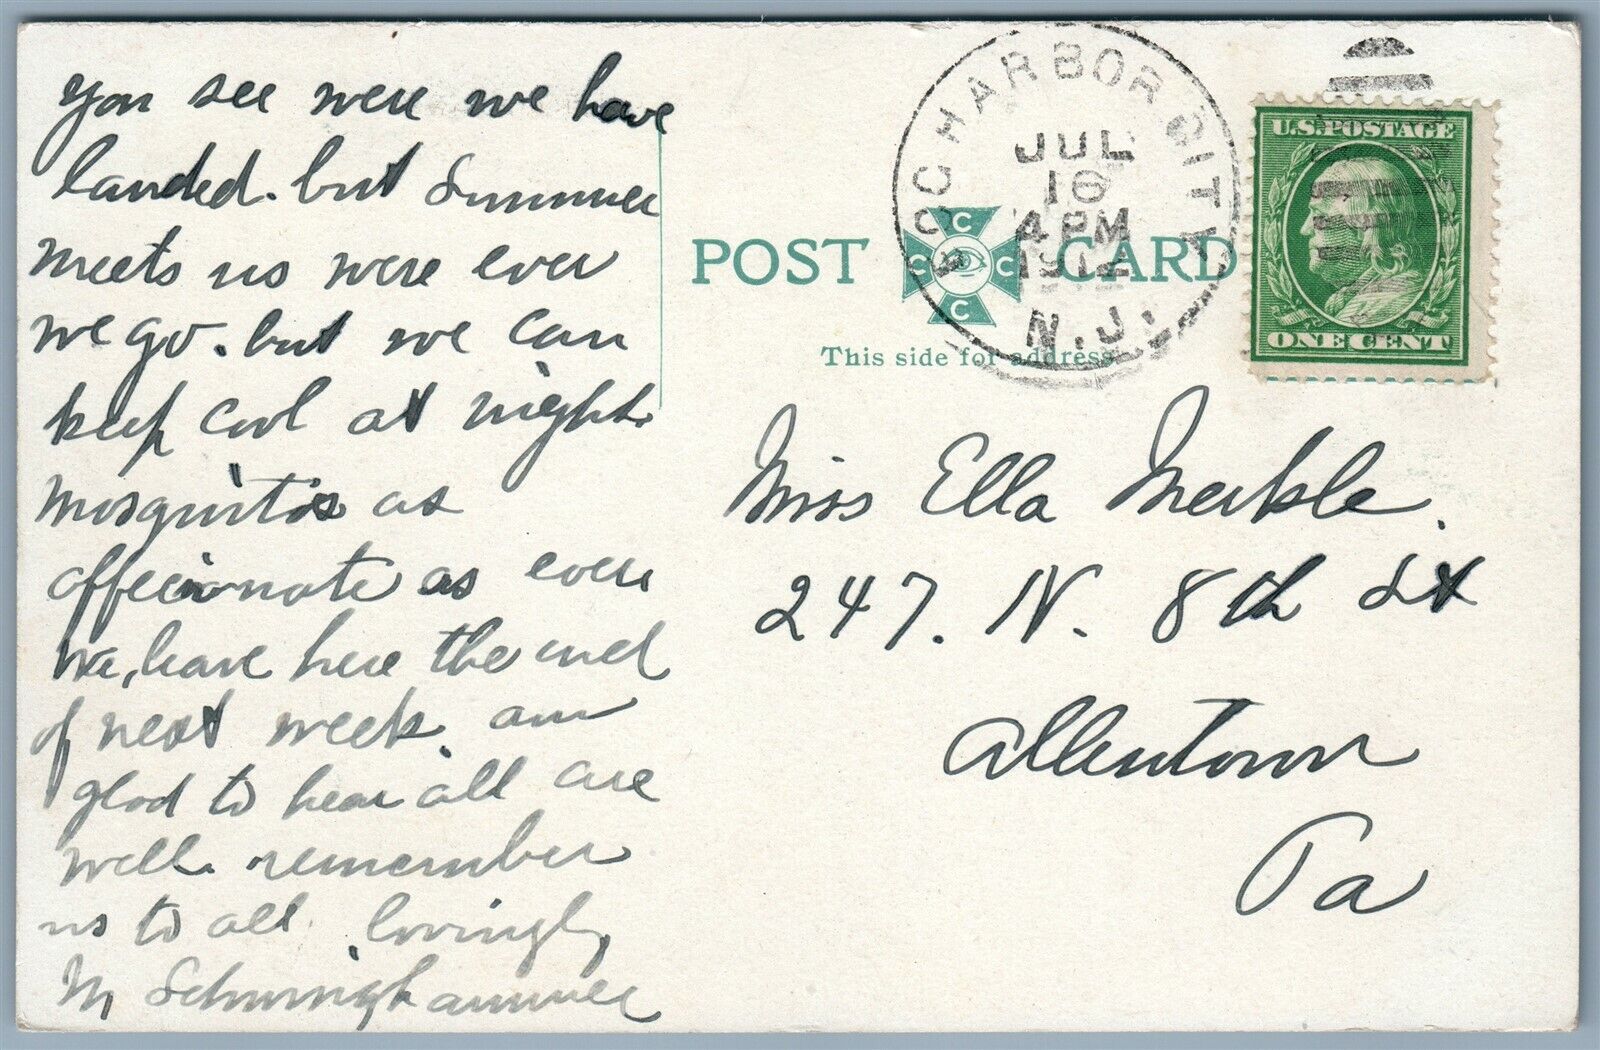 you see were we have
landed. but Summer
meets us were ever
we go. but we can
keep cool at night.
mosquitos as
affecionate as ever
we, leave here the end
of next week. am
glad to hear all are
well. remember
us to all. lovingly
M Schwinghammer
EGG HARBOR CITY
JUL
16
4 PM
1912
N.J.
U.S. POSTAGE
ONE CENT
POST CARD
C
C C
C
This side for address
Miss Ella Merkle.
247. N. 8th St
Allentown
Pa